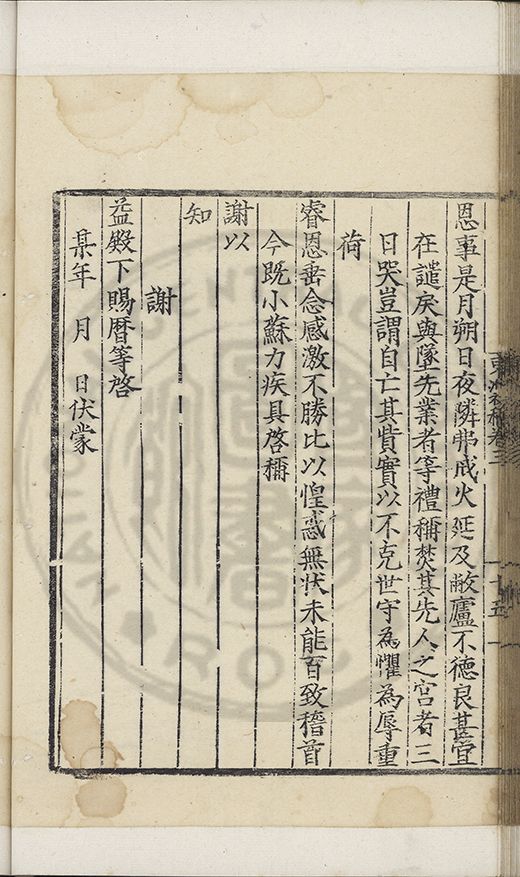 恩事是月朔日夜隣弗戒火延及敝廬不德良甚宜
在譴戾與墜先業者等禮稱焚其先人之宮者三
日哭豈謂自亡其貲實以不克世守為懼為辱重
荷
睿恩垂念感激不勝比以惶惑無狀未能百致稽首
今既小蘇力疾具啓稱
謝以
知
謝
益殿下賜曆等啓
某年 月 日伏蒙